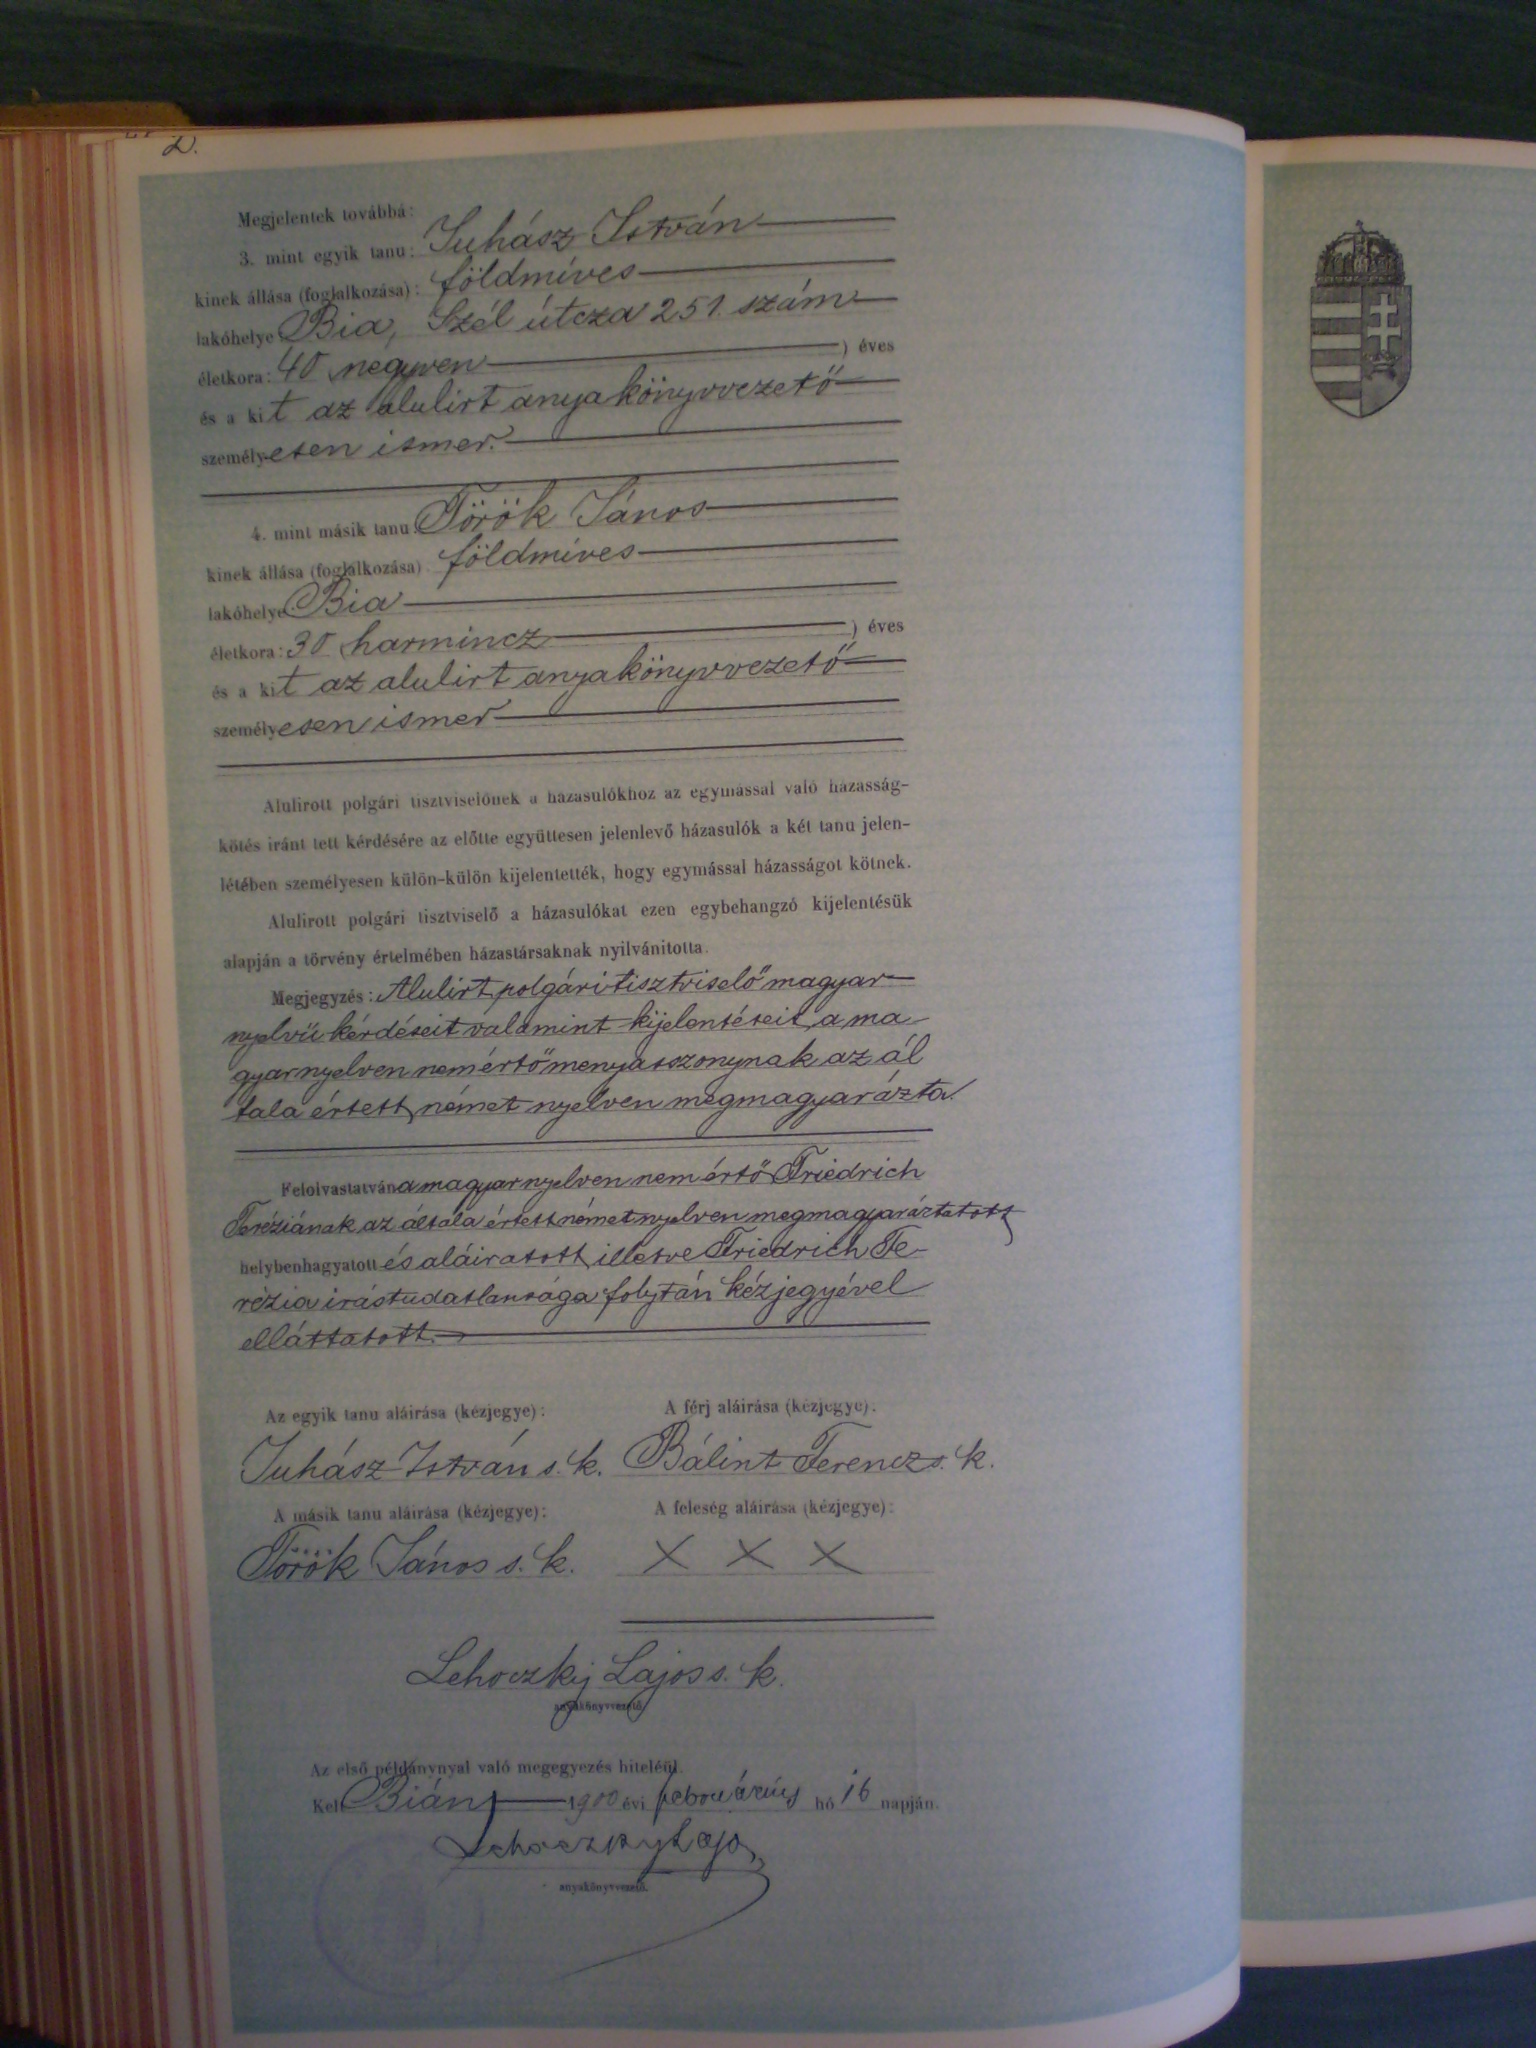 2.
Megjelentek továbbá:
3. mint egyik tanu: Juhász István
kinek állása (foglalkozása): földmíves
lakóhelye Bia, Szél útcza 251. szám
életkora: 40 negyven ) éves
és a kit az alulirt anyakönyvvezető
személyesen ismer.
4. mint másik tanu: Török János
kinek állása (foglalkozása) földmíves
lakóhelye Bia
életkora: 30 harmincz ) éves
és a kit az alulirt anyakönyvvezető
személyesen ismer
Alulirott polgári tisztviselőnek a házasulókhoz az egymással való házasság-
kötés iránt tett kérdésére az előtte együttesen jelenlevő házasulók a két tanu jelen-
létében személyesen külön-külön kijelentették, hogy egymással házasságot kötnek.
Alulirott polgári tisztviselő a házasulókat ezen egybehangzó kijelentésük
alapján a törvény értelmében házastársaknak nyilvánitotta.
Megjegyzés: Alulirt polgári tisztviselő magyar
nyelvü kérdéseit valamint kijelentéseit a ma-
gyar nyelven nem értő menyasszonynak az ál
tala értett német nyelven megmagyarázta.
Felolvastatván a magyar nyelven nem értő Friedrich
Teréziának az általa értett német nyelven megmagyaráztatott
helybenhagyatott és aláiratott, illetve Friedrich Te-
rézia irástudatlansága folytán kézjegyével
elláttatott.
Az egyik tanu aláirása (kézjegye): A férj aláirása (kézjegye):
Juhász István s. k. Bálint Ferencz s. k.
A másik tanu aláirása (kézjegye): A feleség aláirása (kézjegye):
Török János s. k. X X X
Lehoczky Lajos s. k.
anyakönyvvezető.
Az első példánynyal való megegyezés hiteléül.
Kelt Bián, 1900 évi február hó 16 napján.
Lehoczky Lajos
anyakönyvvezető.